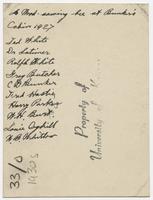 sewing bee at Bunker's
Cabin 1927
Ted White
Dr Latimer
Ralph White
Greg Butcher
C D Bunker
Fred Hastie
Harry Parker
W. H. Burt
Louie Coghill
W B Whitlow
Property of
University of
33/0
1930s